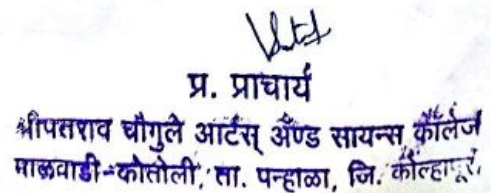 प्र. प्राचार्य
श्रीपतराव चौगुले आर्टस् अँण्ड सायन्स कॉलेज
माळवाडी-कोतोली, ता. पन्हाळा, जि. कोल्हापूर.